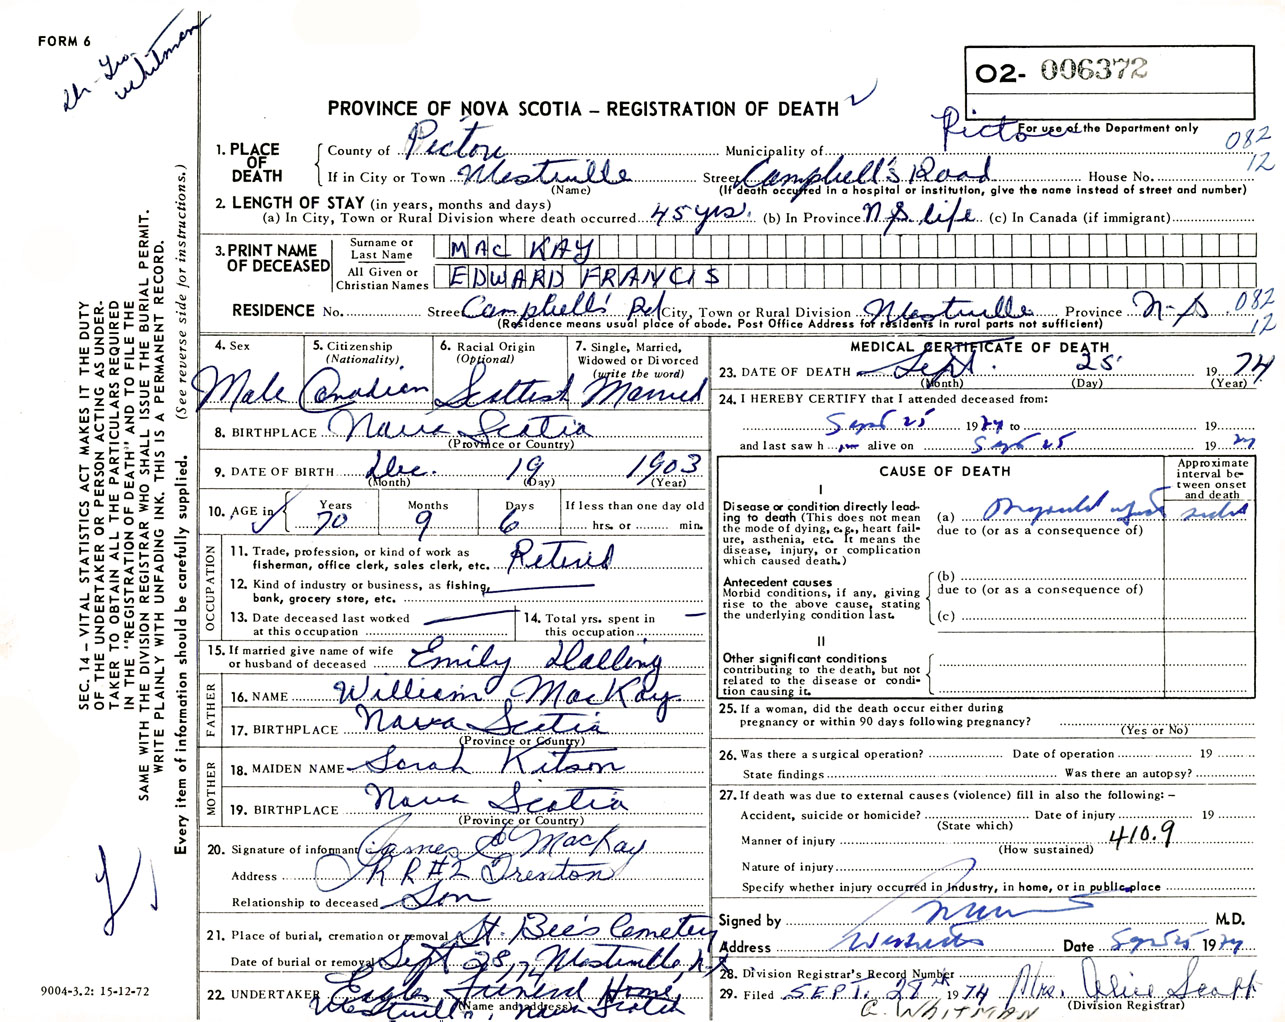 FORM 6
Whitman
O2- 006372
PROVINCE OF NOVA SCOTIA – REGISTRATION OF DEATH
Pictou
For use of the Department only
082
12
1. PLACE OF DEATH
County of Pictou Municipality of
If in City or Town Westville Street Campbell's Road House No.
(Name) (If death occurred in a hospital or institution, give the name instead of street and number)
2. LENGTH OF STAY (in years, months and days)
(a) In City, Town or Rural Division where death occurred 45 yrs. (b) In Province N.S. life (c) In Canada (if immigrant)
3. PRINT NAME OF DECEASED
Surname or Last Name MAC KAY
All Given or Christian Names EDWARD FRANCIS
RESIDENCE No. Street Campbell's Rd City, Town or Rural Division Westville Province N.S. 082
(Residence means usual place of abode. Post Office Address for residents in rural parts not sufficient) 12
4. Sex Male
5. Citizenship (Nationality) Canadian
6. Racial Origin (Optional) Scottish
7. Single, Married, Widowed or Divorced (write the word) Married
8. BIRTHPLACE Nova Scotia
(Province or Country)
9. DATE OF BIRTH Dec. 19 1903
(Month) (Day) (Year)
10. AGE in Years Months Days If less than one day old
70 9 6 hrs. or min.
OCCUPATION
11. Trade, profession, or kind of work as
fisherman, office clerk, sales clerk, etc. Retired
12. Kind of industry or business, as fishing,
bank, grocery store, etc.
13. Date deceased last worked
at this occupation
14. Total yrs. spent in
this occupation
15. If married give name of wife
or husband of deceased Emily Halling
FATHER
16. NAME William MacKay
17. BIRTHPLACE Nova Scotia
(Province or Country)
MOTHER
18. MAIDEN NAME Sarah Kitson
19. BIRTHPLACE Nova Scotia
(Province or Country)
20. Signature of informant James C MacKay
Address R R #2 Trenton
Relationship to deceased Son
21. Place of burial, cremation or removal St. Bee's Cemetery
Date of burial or removal Sept 28, 74 Westville, N.S.
22. UNDERTAKER Eagles Funeral Home,
(Name and address)
Westville, Nova Scotia
MEDICAL CERTIFICATE OF DEATH
23. DATE OF DEATH Sept. 25 19 74
(Month) (Day) (Year)
24. I HEREBY CERTIFY that I attended deceased from:
Sept 25 19 74 to 19
and last saw h im alive on Sept 25 19 74
CAUSE OF DEATH
Approximate interval between onset and death
I
Disease or condition directly leading to death (This does not mean the mode of dying, e.g., heart failure, asthenia, etc. It means the disease, injury, or complication which caused death.)
(a)
due to (or as a consequence of)
Antecedent causes
Morbid conditions, if any, giving rise to the above cause, stating the underlying condition last.
(b)
due to (or as a consequence of)
(c)
II
Other significant conditions
contributing to the death, but not related to the disease or condition causing it.
25. If a woman, did the death occur either during
pregnancy or within 90 days following pregnancy?
(Yes or No)
26. Was there a surgical operation? Date of operation 19
State findings Was there an autopsy?
27. If death was due to external causes (violence) fill in also the following: –
Accident, suicide or homicide? Date of injury 19
(State which)
Manner of injury 410.9
(How sustained)
Nature of injury
Specify whether injury occurred in Industry, in home, or in public place
Signed by M.D.
Address Westville Date Sept 25 19 74
28. Division Registrar's Record Number
29. Filed SEPT. 28th 19 74 Mrs. Alice Scott
(Division Registrar)
C. WHITMAN
SEC. 14 – VITAL STATISTICS ACT MAKES IT THE DUTY
OF THE UNDERTAKER OR PERSON ACTING AS UNDER-
TAKER TO OBTAIN ALL THE PARTICULARS REQUIRED
IN THE "REGISTRATION OF DEATH" AND TO FILE THE
SAME WITH THE DIVISION REGISTRAR WHO SHALL ISSUE THE BURIAL PERMIT.
WRITE PLAINLY WITH UNFADING INK. THIS IS A PERMANENT RECORD.
Every item of information should be carefully supplied. (See reverse side for instructions.)
9004-3.2: 15-12-72